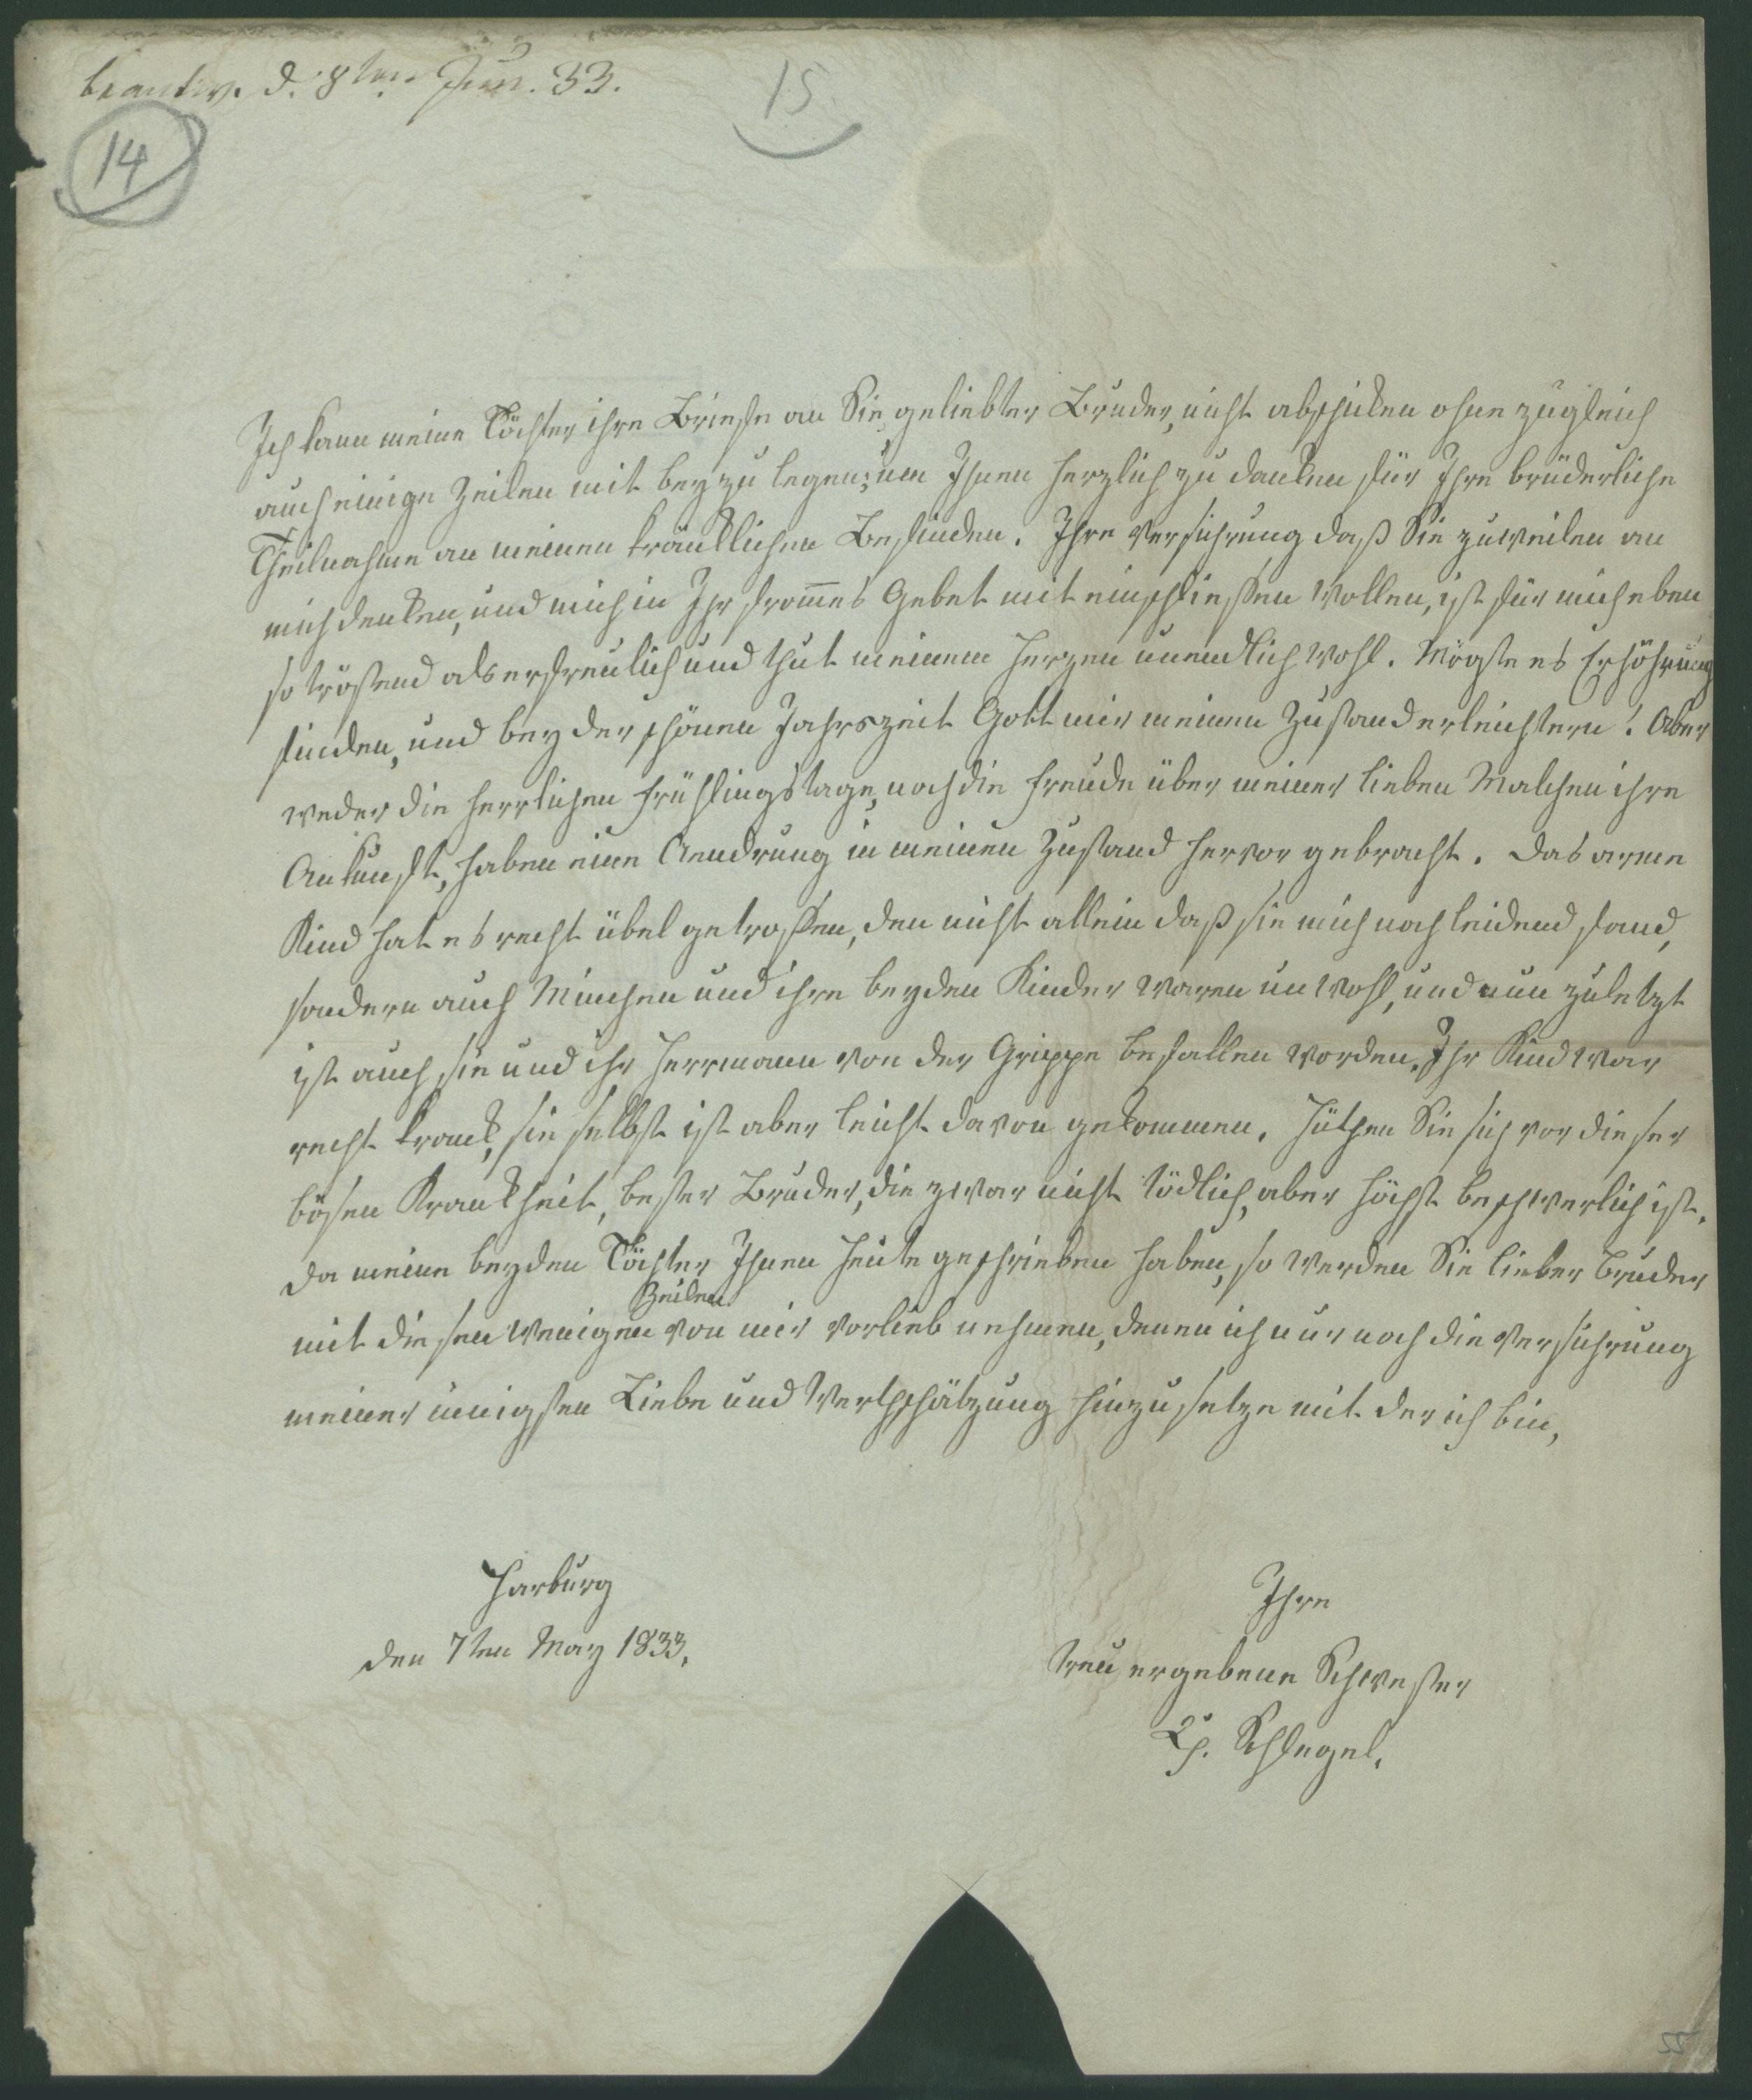 beantw. d. 8ten Jun. 33.
15
14
Ich kann meine Töchter ihre Briefe an Sie, geliebter Bruder, nicht abschicken ohne zugleich
auch einige Zeilen mit beyzulegen; um Ihnen herzlich zu danken für Ihre brüderliche
Theilnahme an meinen kränklichen Befinden. Ihre Versichrung daß Sie zuweilen an
mich denken, und mich in Ihr from̅es Gebet mit einschließen wollen, ist für mich eben
so tröstend als erfreulich und thut meinem Herzen unendlich wohl. Mögte es Erhöhrung
finden, und bey der schönen Jahrszeit Gott mir meinen Zustand erleichtern! Aber
weder die herrlichen Frühlingstage, noch die Freude über meiner lieben Malchen ihre
Ankunft, haben eine Aendrung in meinen Zustand hervor gebracht. Das arme
Kind hat es recht übel getroffen, den nicht allein daß sie mich noch leidend fand,
sondern auch Minchen und ihre beyden Kinder waren unwohl, und nun zuletzt
ist auch sie und ihr Herrmann von der Grippe befallen worden. Ihr Kind war
recht krank, sie selbst ist aber leicht davon gekommen. Hüthen Sie sich vor dieser
bösen Krankheit, bester Bruder, die zwar nicht tödlich, aber höchst beschwerlich ist.
Da meine beyden Töchter Ihnen heute geschrieben haben, so werden Sie lieber Bruder
Zeilen
mit diesen wenigen von mir vorlieb nehmen, denen ich nur noch die Versichrung
meiner innigsten Liebe und Werthschätzung hinzusetze mit der ich bin,
Harburg
den 7ten May 1833.
Ihre
treu ergebene Schwester
Schlegel.
55